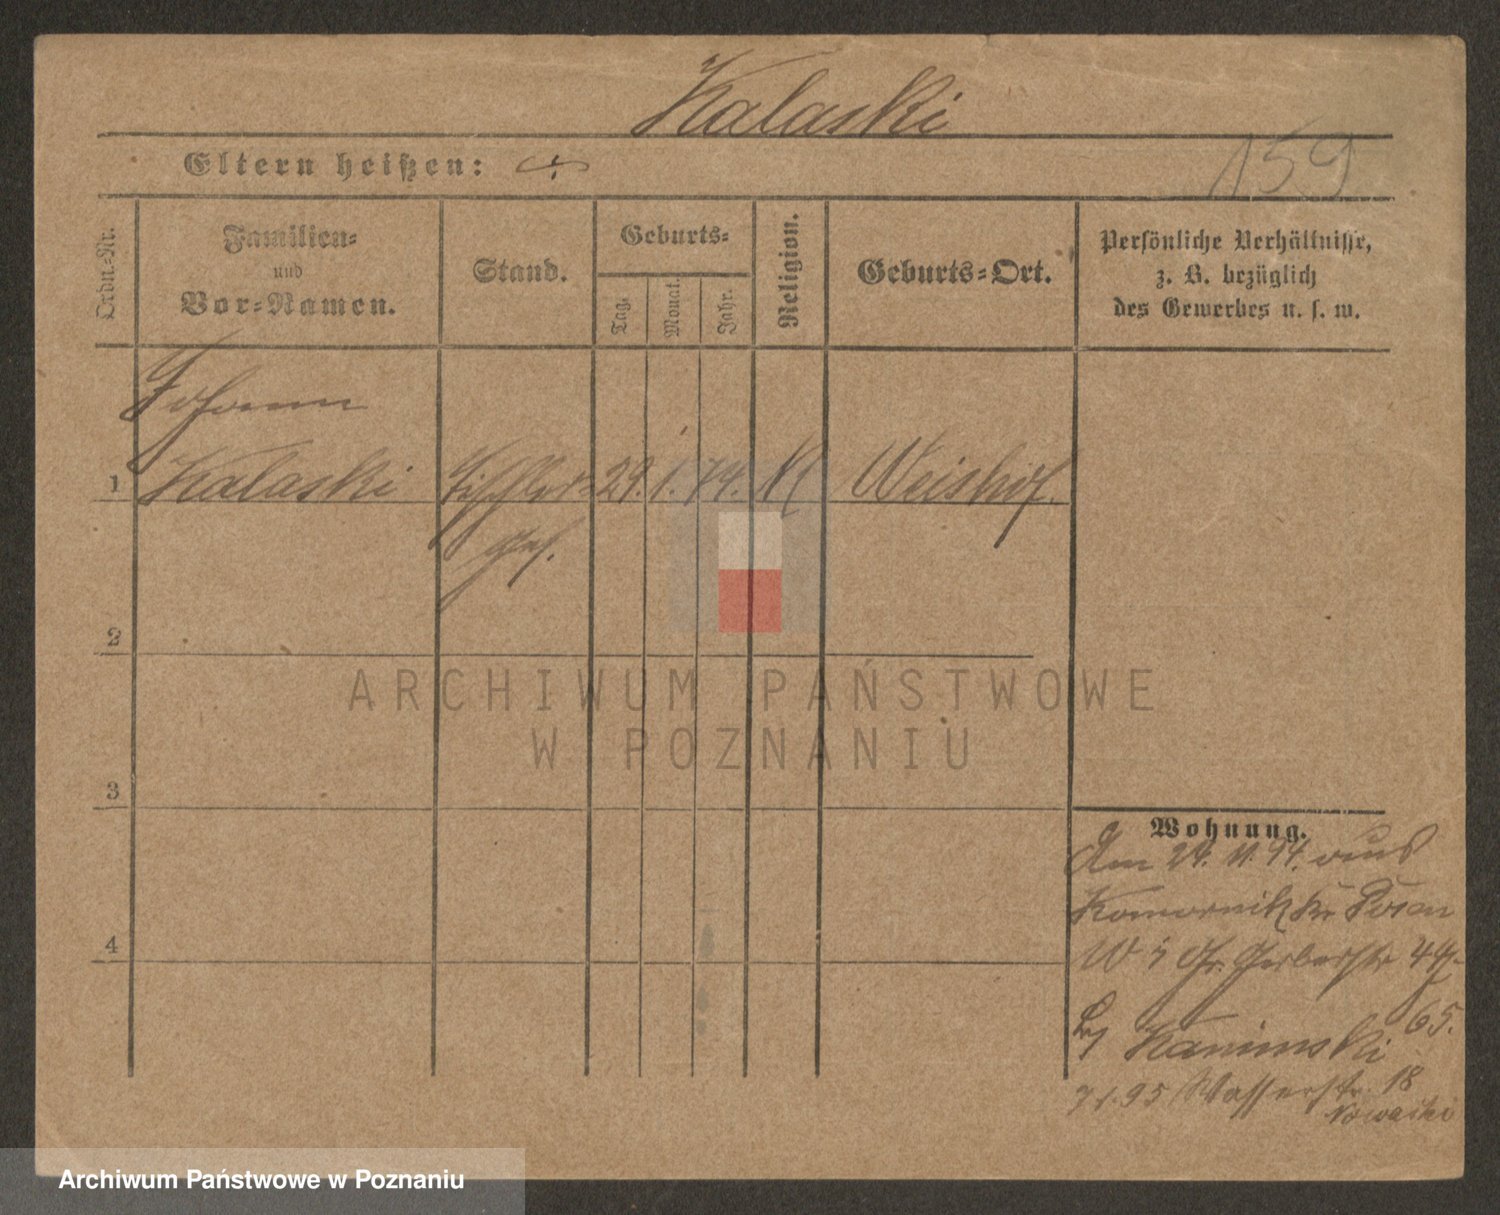 Kalaski
Eltern heißen: ÷
159
Ordn.-Nr.
Familien-
und
Vor-Namen.
Stand.
Geburts-
Tag.
Monat.
Jahr.
Religion.
Geburts-Ort.
Persönliche Verhältnisse,
z. B. bezüglich
des Gewerbes u. s. w.
Johann
1 Kalaski 29. 1. 74. K Weishof.
2
ARCHIWUM PAŃSTWOWE
W POZNANIU
3
Wohnung.
Am 24. 11. 94. aus
Komornik Kr. Posen
W Gr. Gerberstr
4
65.
Kaminski
7 1. 95 Wasserstr. 18
Nowacki
Archiwum Państwowe w Poznaniu